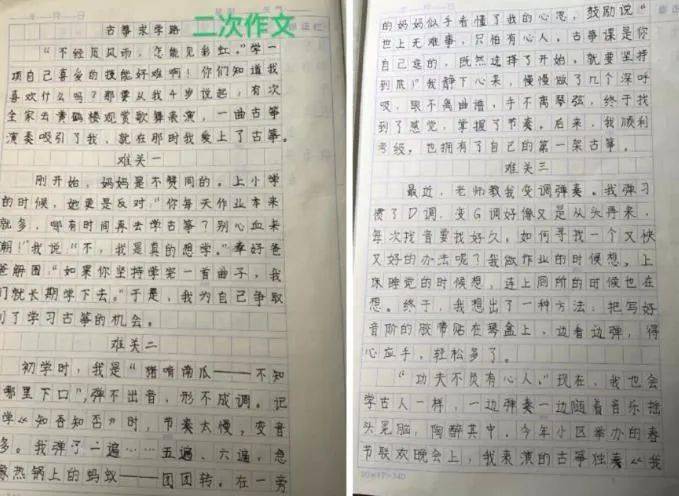 古筝求学路
二次作文
“不经历风雨，怎能见彩虹。”学一
项自己喜爱的技能好难啊！你们知道我
喜欢什么吗？那要从我4岁说起，有次
全家去黄鹤楼观赏歌舞表演，一曲古筝
演奏吸引了我，就在那时我爱上了古筝。
难关一
刚开始，妈妈是不赞同的。上小学
的时候，她更是反对：“你每天作业本来
就多，哪有时间再去学古筝？别心血来
潮！”我说：“不，我是真的想学。”幸好爸
爸解围：“如果你坚持学完一首曲子，我
们就长期学下去。”于是，我为自己争取
到了学习古筝的机会。
难关二
初学时，我是“猪啃南瓜——不知
哪里下口”，弹不出音，形不成调。记
学《知否知否》时，节奏太慢，变音
多。我弹了一遍……五遍、六遍，急
象热锅上的蚂蚁——团团转。在一旁
的妈妈似乎看懂了我的心思，鼓励说：“
世上无难事，只怕有心人。古筝课是你
自己选的，既然选择了开始，就要坚持
到底！”我静下心来，慢慢做了几个深呼
吸，眼不离曲谱，手不离琴弦，终于找
到了感觉，掌握了节奏。后来，我顺利
考级，也拥有了自己的第一架古筝。
难关三
最近，老师教我变调弹奏。我弹习
惯了D调，变G调好像又是从头再来，
每次找音要找好久，如何寻找一个又快
又好的办法呢？我做作业的时候想，上
床睡觉的时候想，连上厕所的时候也在
想。终于，我想出了一种方法：把写好
音阶的胶带贴在琴盒上，边看边弹，得
心应手，轻松多了。
“功夫不负有心人。”现在，我也会
学古人一样，一边弹奏一边随着音乐摇
头晃脑，陶醉其中。今年小区举办的春
节联欢晚会上，我表演的古筝独奏《我